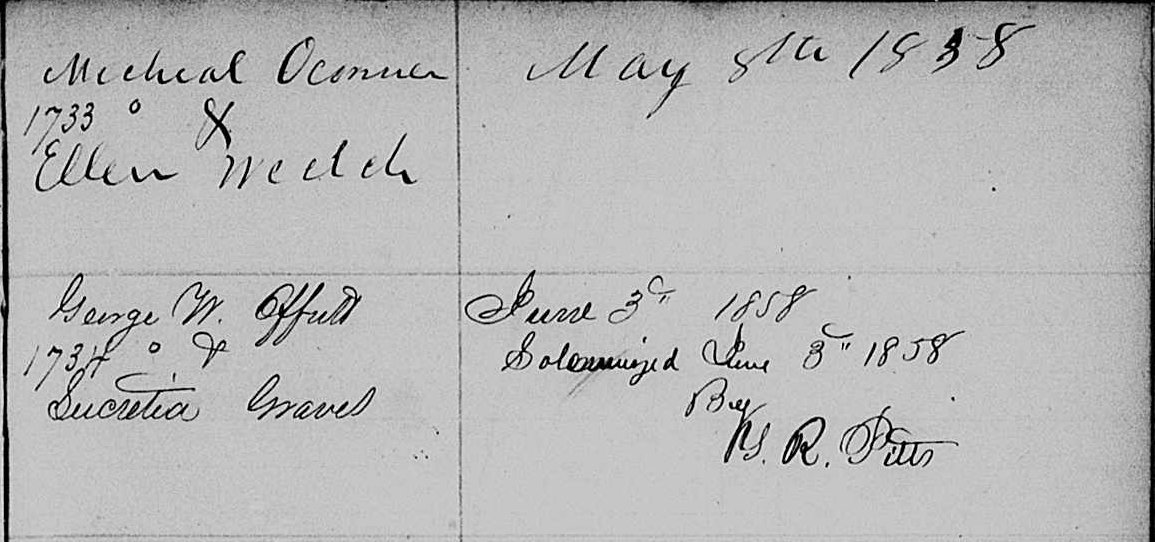 Micheal Oconner
1733 o &
Ellen Welch
May 8th 1858
George W. Offutt
1734 o &
Lucretia Graves
June 3d 1858
Solemnized June 3d 1858
By
Y. R. Pitts